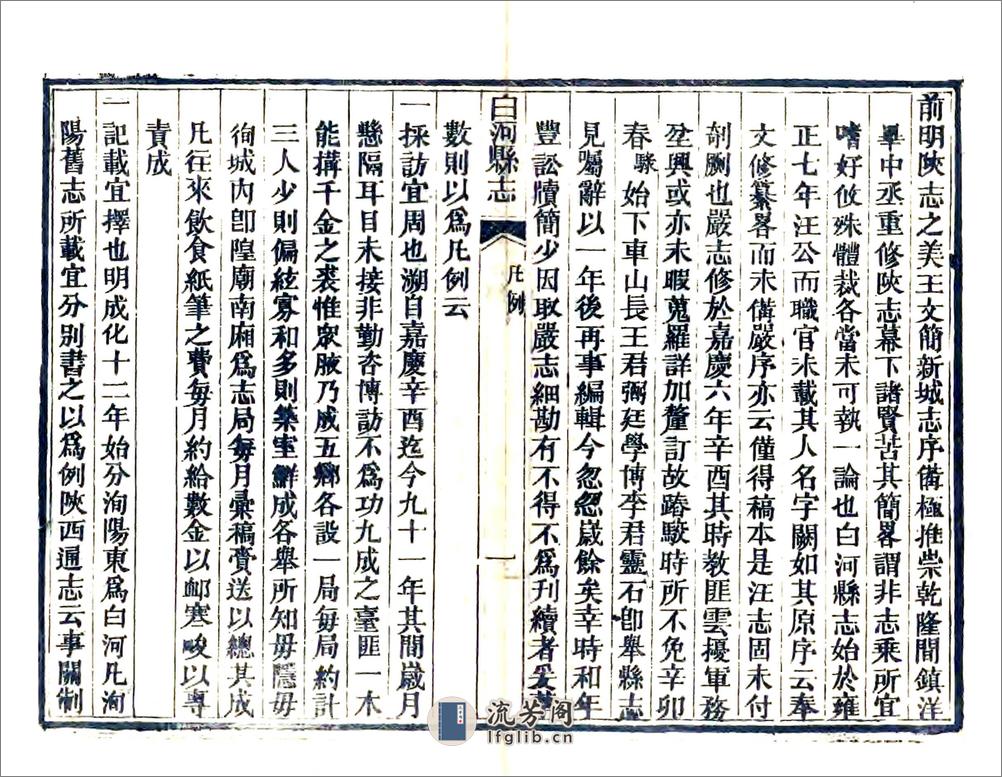 前明陝志之美王文簡新城志序備極推崇乾隆間鎮洋
畢中丞重修陝志幕下諸賢苦其簡畧謂非志乘所宜
嗜好攸殊體裁各當未可執一論也白河縣志始於雍
正七年汪公而職官未載其人名字闕如其原序云奉
文修纂畧而未備嚴序亦云僅得稿本是汪志固未付
剞劂也嚴志修於嘉慶六年辛酉其時教匪雲擾軍務
坌興或亦未暇蒐羅詳加釐訂故踳駮時所不免辛卯
春騄始下車山長王君弼廷學博李君靈石卽舉縣志
見囑辭以一年後再事編輯今忽忽歲餘矣幸時和年
豐訟牘簡少因取嚴志細勘有不得不爲刋續者爰
數則以爲凡例云
白河縣志
凡例
一
一採訪宜周也溯自嘉慶辛酉迄今九十一年其間歲月
懸隔耳目未接非勤咨博訪不爲功九成之臺匪一木
能搆千金之裘惟眾腋乃成五鄉各設一局每局約計
三人少則偏絃寡和多則築室鮮成各舉所知毋隱毋
徇城內卽隍廟南廂爲志局每月彙稿賫送以總其成
凡往來飲食紙筆之費每月約給數金以䘏寒畯以專
責成
一記載宜擇也明成化十二年始分洵陽東爲白河凡洵
陽舊志所載宜分別書之以爲例陝西通志云事關制
流芳阁
lfglib.cn